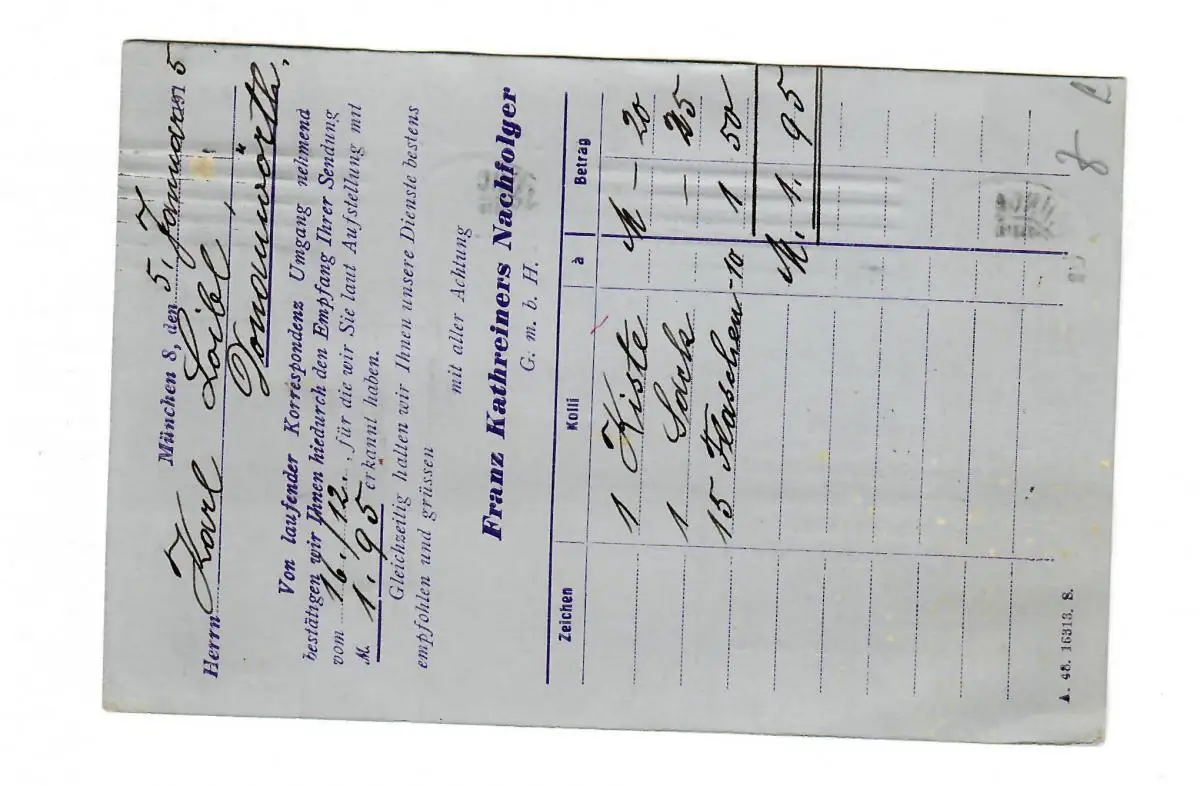 München 8, den 5. Januar 1905
Herrn Karl Loibl,
Donauwörth.
Von laufender Korrespondenz Umgang nehmend
bestätigen wir Ihnen hiedurch den Empfang Ihrer Sendung
vom 16./12., für die wir Sie laut Aufstellung mit
M. 1.95 erkannt haben.
Gleichzeitig halten wir Ihnen unsere Dienste bestens
empfohlen und grüssen
mit aller Achtung
Franz Kathreiners Nachfolger
G. m. b. H.
Zeichen Kolli à Betrag
1 Kiste M - 20
1 Sack - 25
15 Flaschen -10 1 50
M. 1. 95
A. 48. 16313. S.